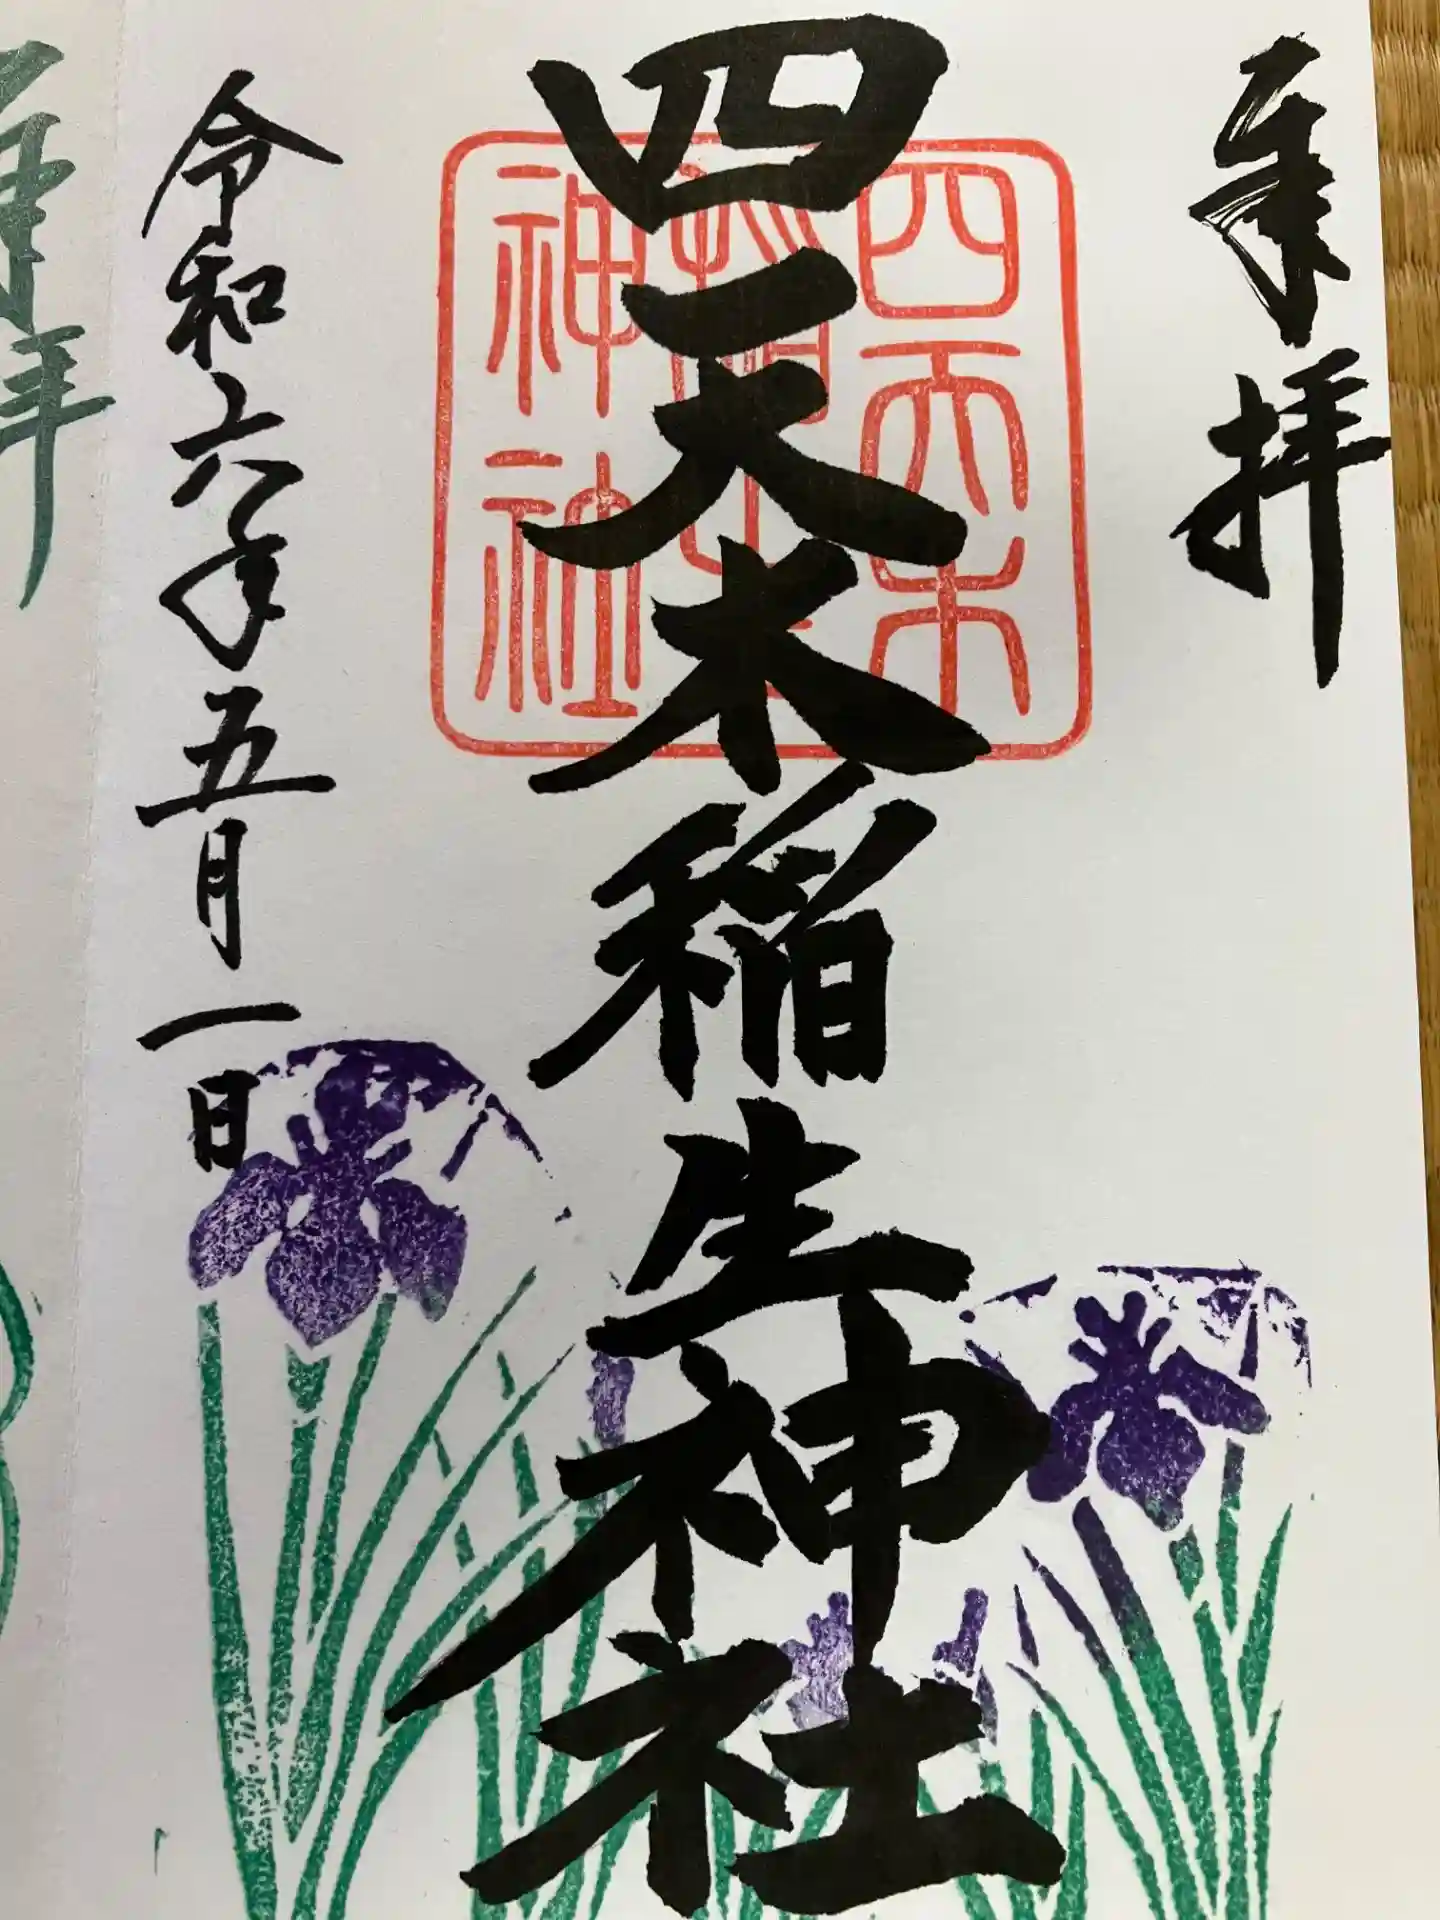 奉拝
四天木稲生神社
四天木
稲生
神社
令和六年五月一日